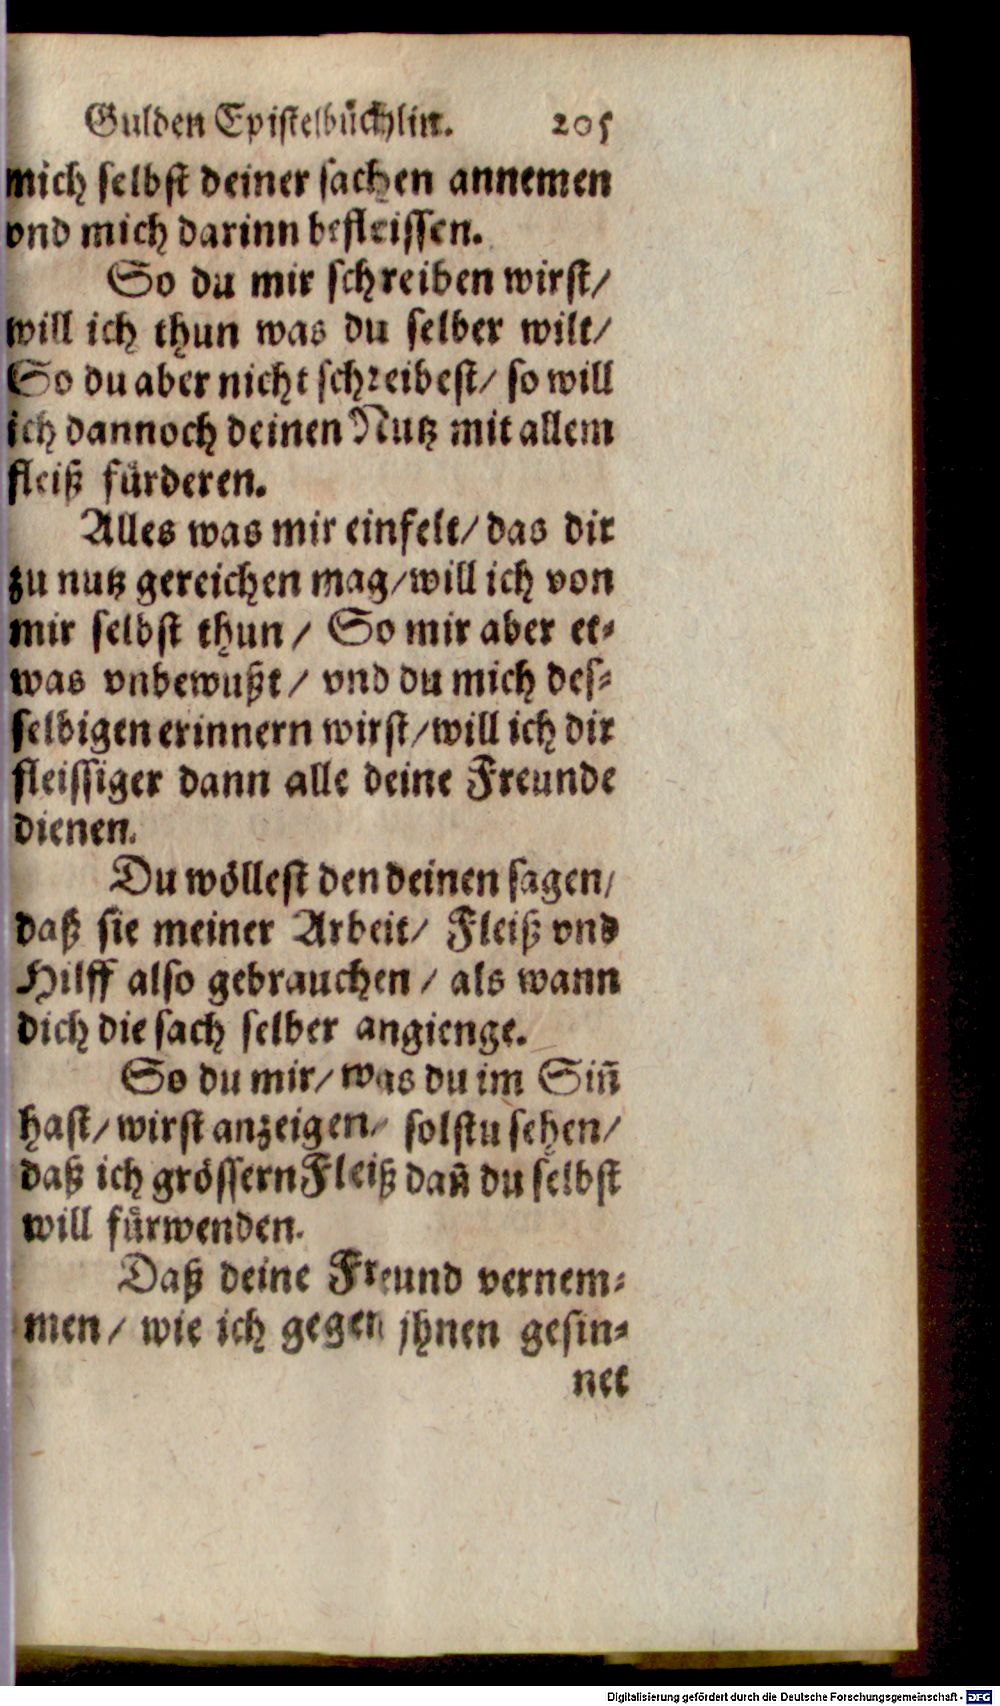 Gulden Epistelbüchlin. 205
mich selbst deiner sachen annemen
vnd mich darinn befleissen.
So du mir schreiben wirst/
will ich thun was du selber wilt/
So du aber nicht schreibest/ so will
ich dannoch deinen Nutz mit allem
fleiß fürderen.
Alles was mir einfelt/ das dir
zu nutz gereichen mag/ will ich von
mir selbst thun/ So mir aber et-
was vnbewußt/ vnd du mich des-
selbigen erinnern wirst/ will ich dir
fleissiger dann alle deine Freunde
dienen.
Du wöllest den deinen sagen/
daß sie meiner Arbeit/ Fleiß vnd
Hilff also gebrauchen/ als wann
dich die sach selber angienge.
So du mir/ was du im Siñ
hast/ wirst anzeigen/ solstu sehen/
daß ich grössern Fleiß dañ du selbst
will fürwenden.
Daß deine Freund vernem-
men/ wie ich gegen jhnen gesin-
net
Digitalisierung gefördert durch die Deutsche Forschungsgemeinschaft - DFG